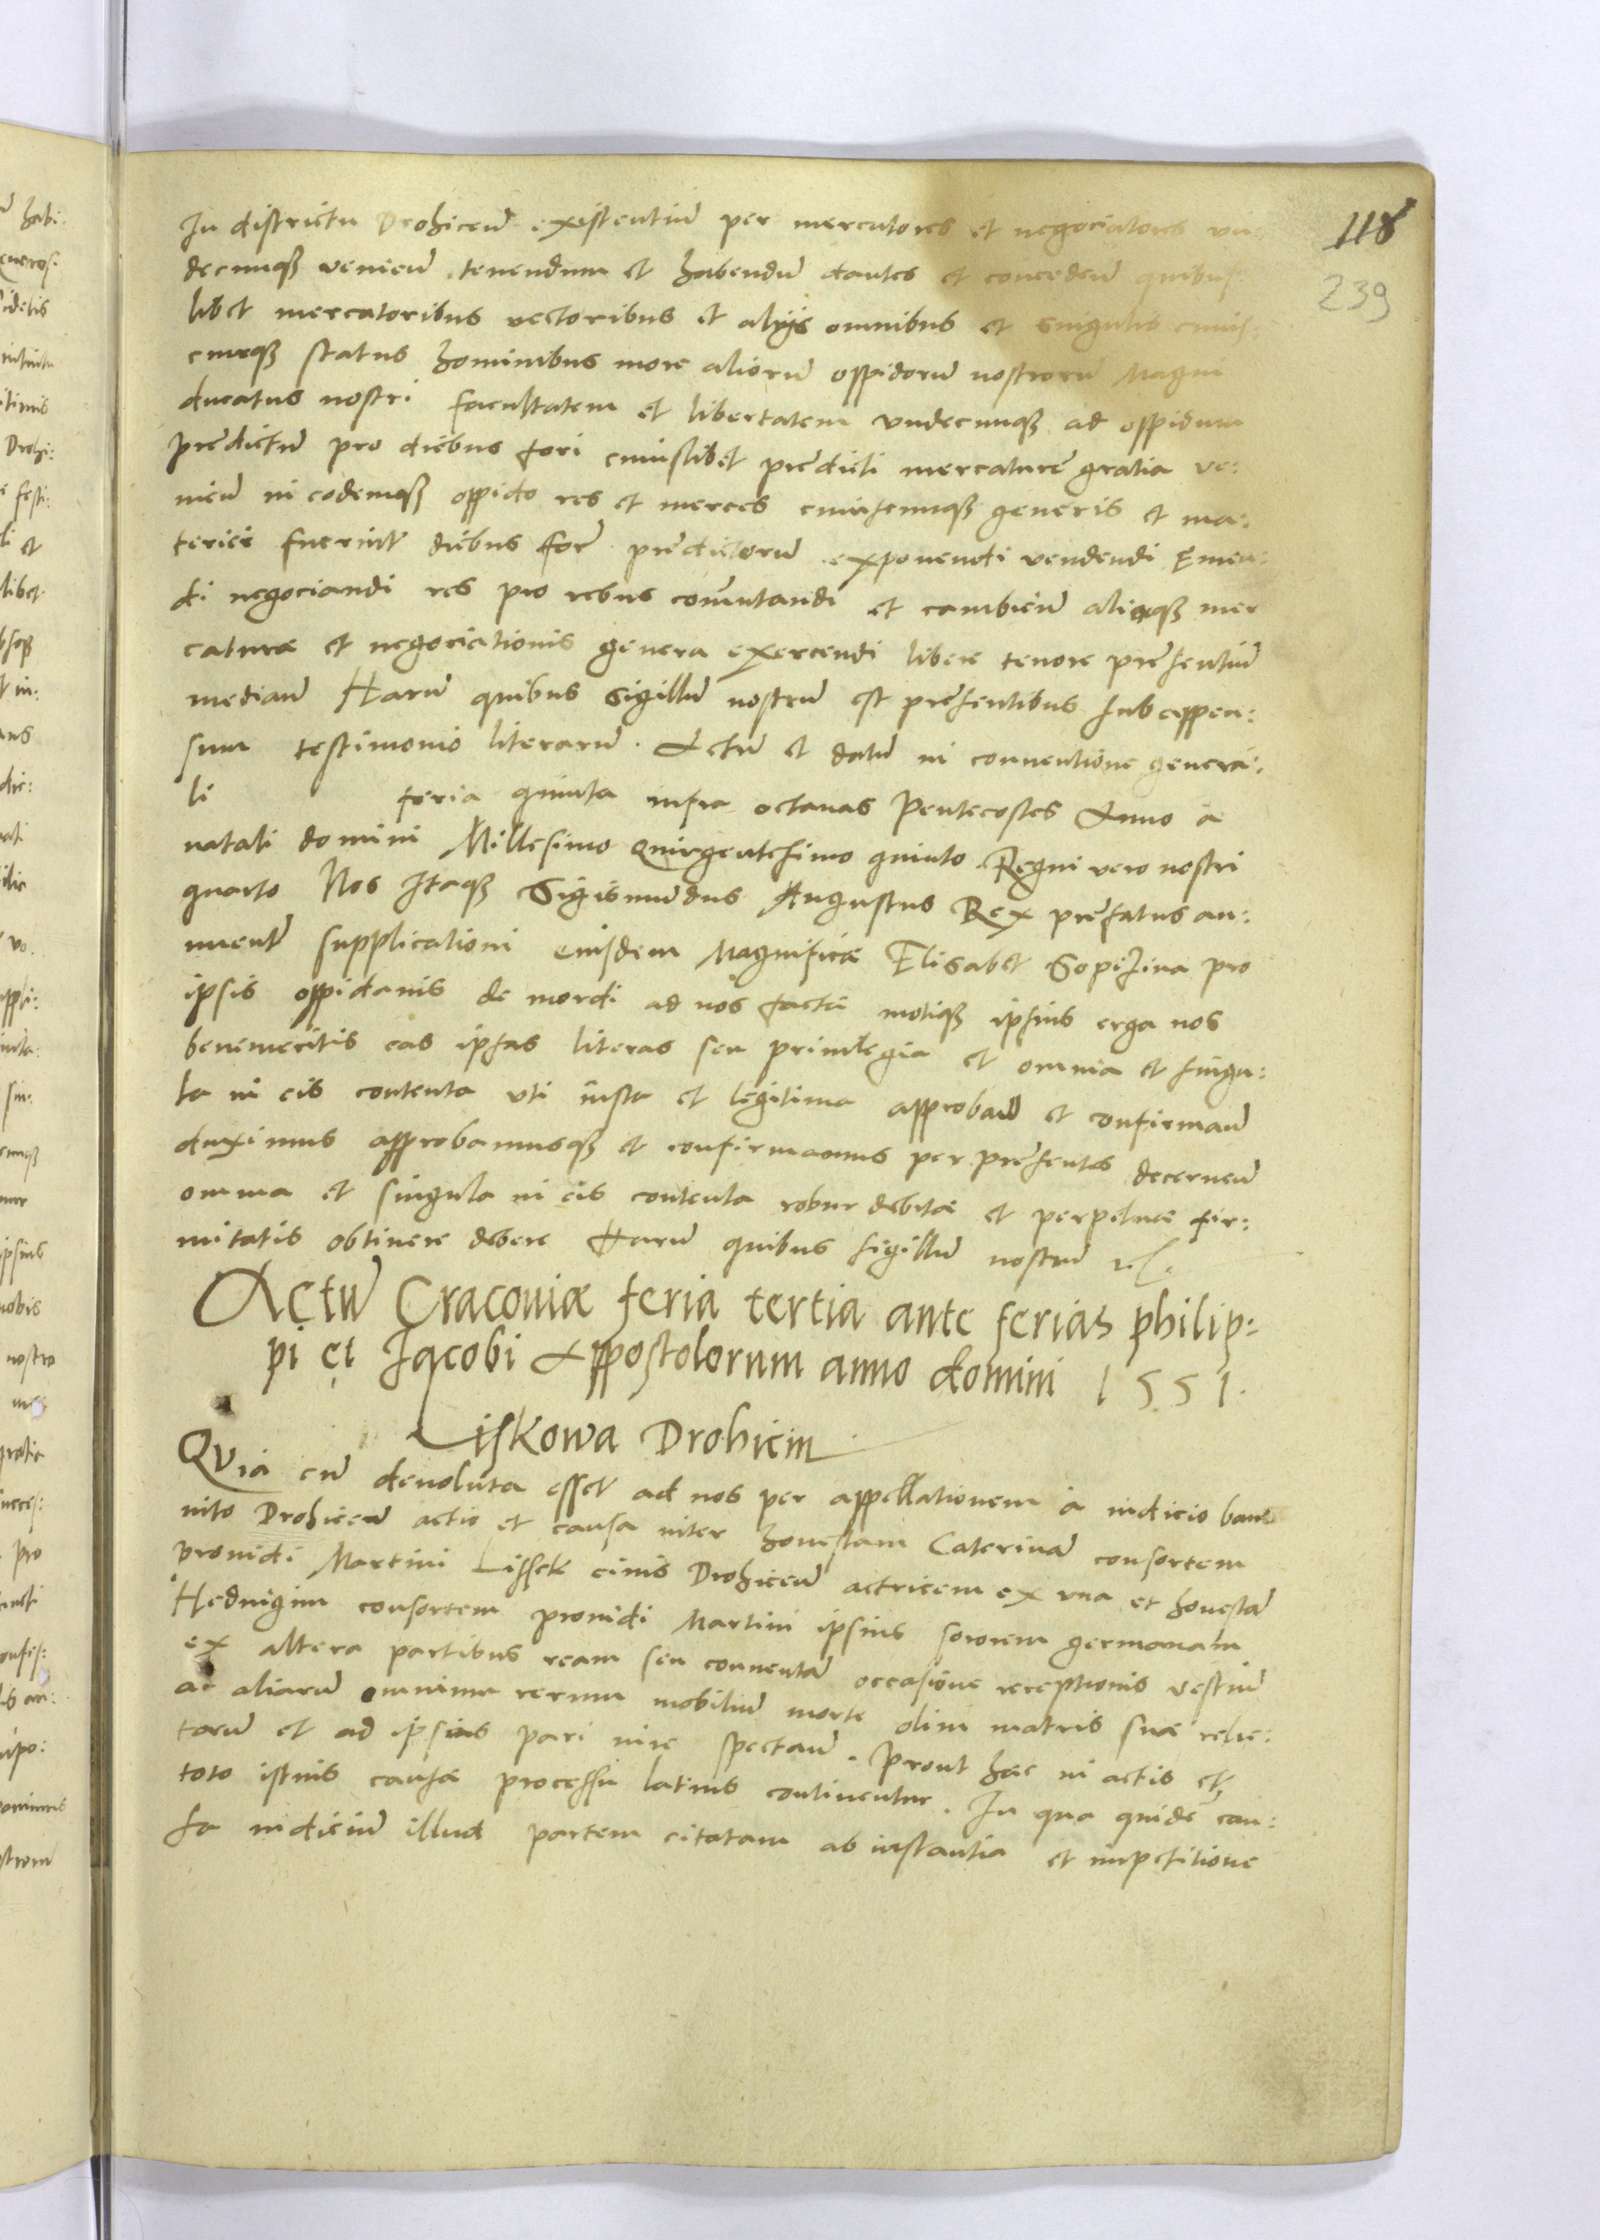 118
239
In districtu Drohiceñ existentiũ per mercatores et negociatores un-
decunq₃ venieñ tenendum et habendũ dantes et concedeñ quibus-
libet mercatoribus vectoribus et alijs omnibus et singulis cuius-
cunq₃ status hominibus more aliorũ oppidorũ nostrorũ Magni
ducatus nostri facultatem et libertatem undecunq₃ ad oppidum
predictũ pro diebus fori cuiuslibet predicti mercature gratia ve:
nieñ in eodemq₃ oppido res et merces cuiuscunq₃ generis et ma:
teriei fuerint diebus for predictorũ exponendi vendendi Emen:
di negociandi res pro rebus comutandi et cambieñ aliaq₃ mer
caturæ et negociationis genera exercendi libere tenore presentiũ
mediañ Harũ quibus sigillũ nostrũ est presentibus subappen:
sum testimonio literarũ. Actũ et datũ in conventione genera:
li feria quinta infra octavas Pentecostes Anno a
natali domini Millesimo Quingentesimo quinto Regni vero nostri
quarto Nos Itaq₃ Sigismundus Augustus Rex prefatus an:
nuentes supplicationi eiusdem Magnificæ Elisabet Sopizina pro
ipsis oppidanis de mordi ad nos factæ motiq₃ ipsius erga nos
benemeritis eas ipsas literas seu privilegia et omnia et singu:
la in eis contenta uti iusta et legitima approbañ et confirmañ
duximus approbamusq₃ et confirmamus per presentes decerneñ
omnia et singula in eis contenta robur debitæ et perpetuæ fir:
mitatis obtinere debere Harũ quibus sigillũ nostrũ
Actũ Cracoviæ feria tertia ante ferias philip:
pi et Jacobi Appostolorum anno domini 1551.
Liskowa Drohicin
Quia cũ devoluta esset ad nos per appellationem a iudicio ban
nito Drohiceñ actio et causa inter honestam Caterinã consortem
providi Martini Lissek civis Drohiceñ actricem ex una et honestã
Hedvigim consortem providi Martini ipsius sororem germanam
ex altera partibus ream seu conventã occasione receptionis vestiũ
ac aliarũ omnium rerum mobiliũ morte olim matris suæ relic:
tarũ et ad ipsias pari iure spectañ. Prout hæc in actis et
toto istius causæ processu latius continentur. In qua quidē cau:
sa iudiciũ illud partem citatam ab instantia et impetitione